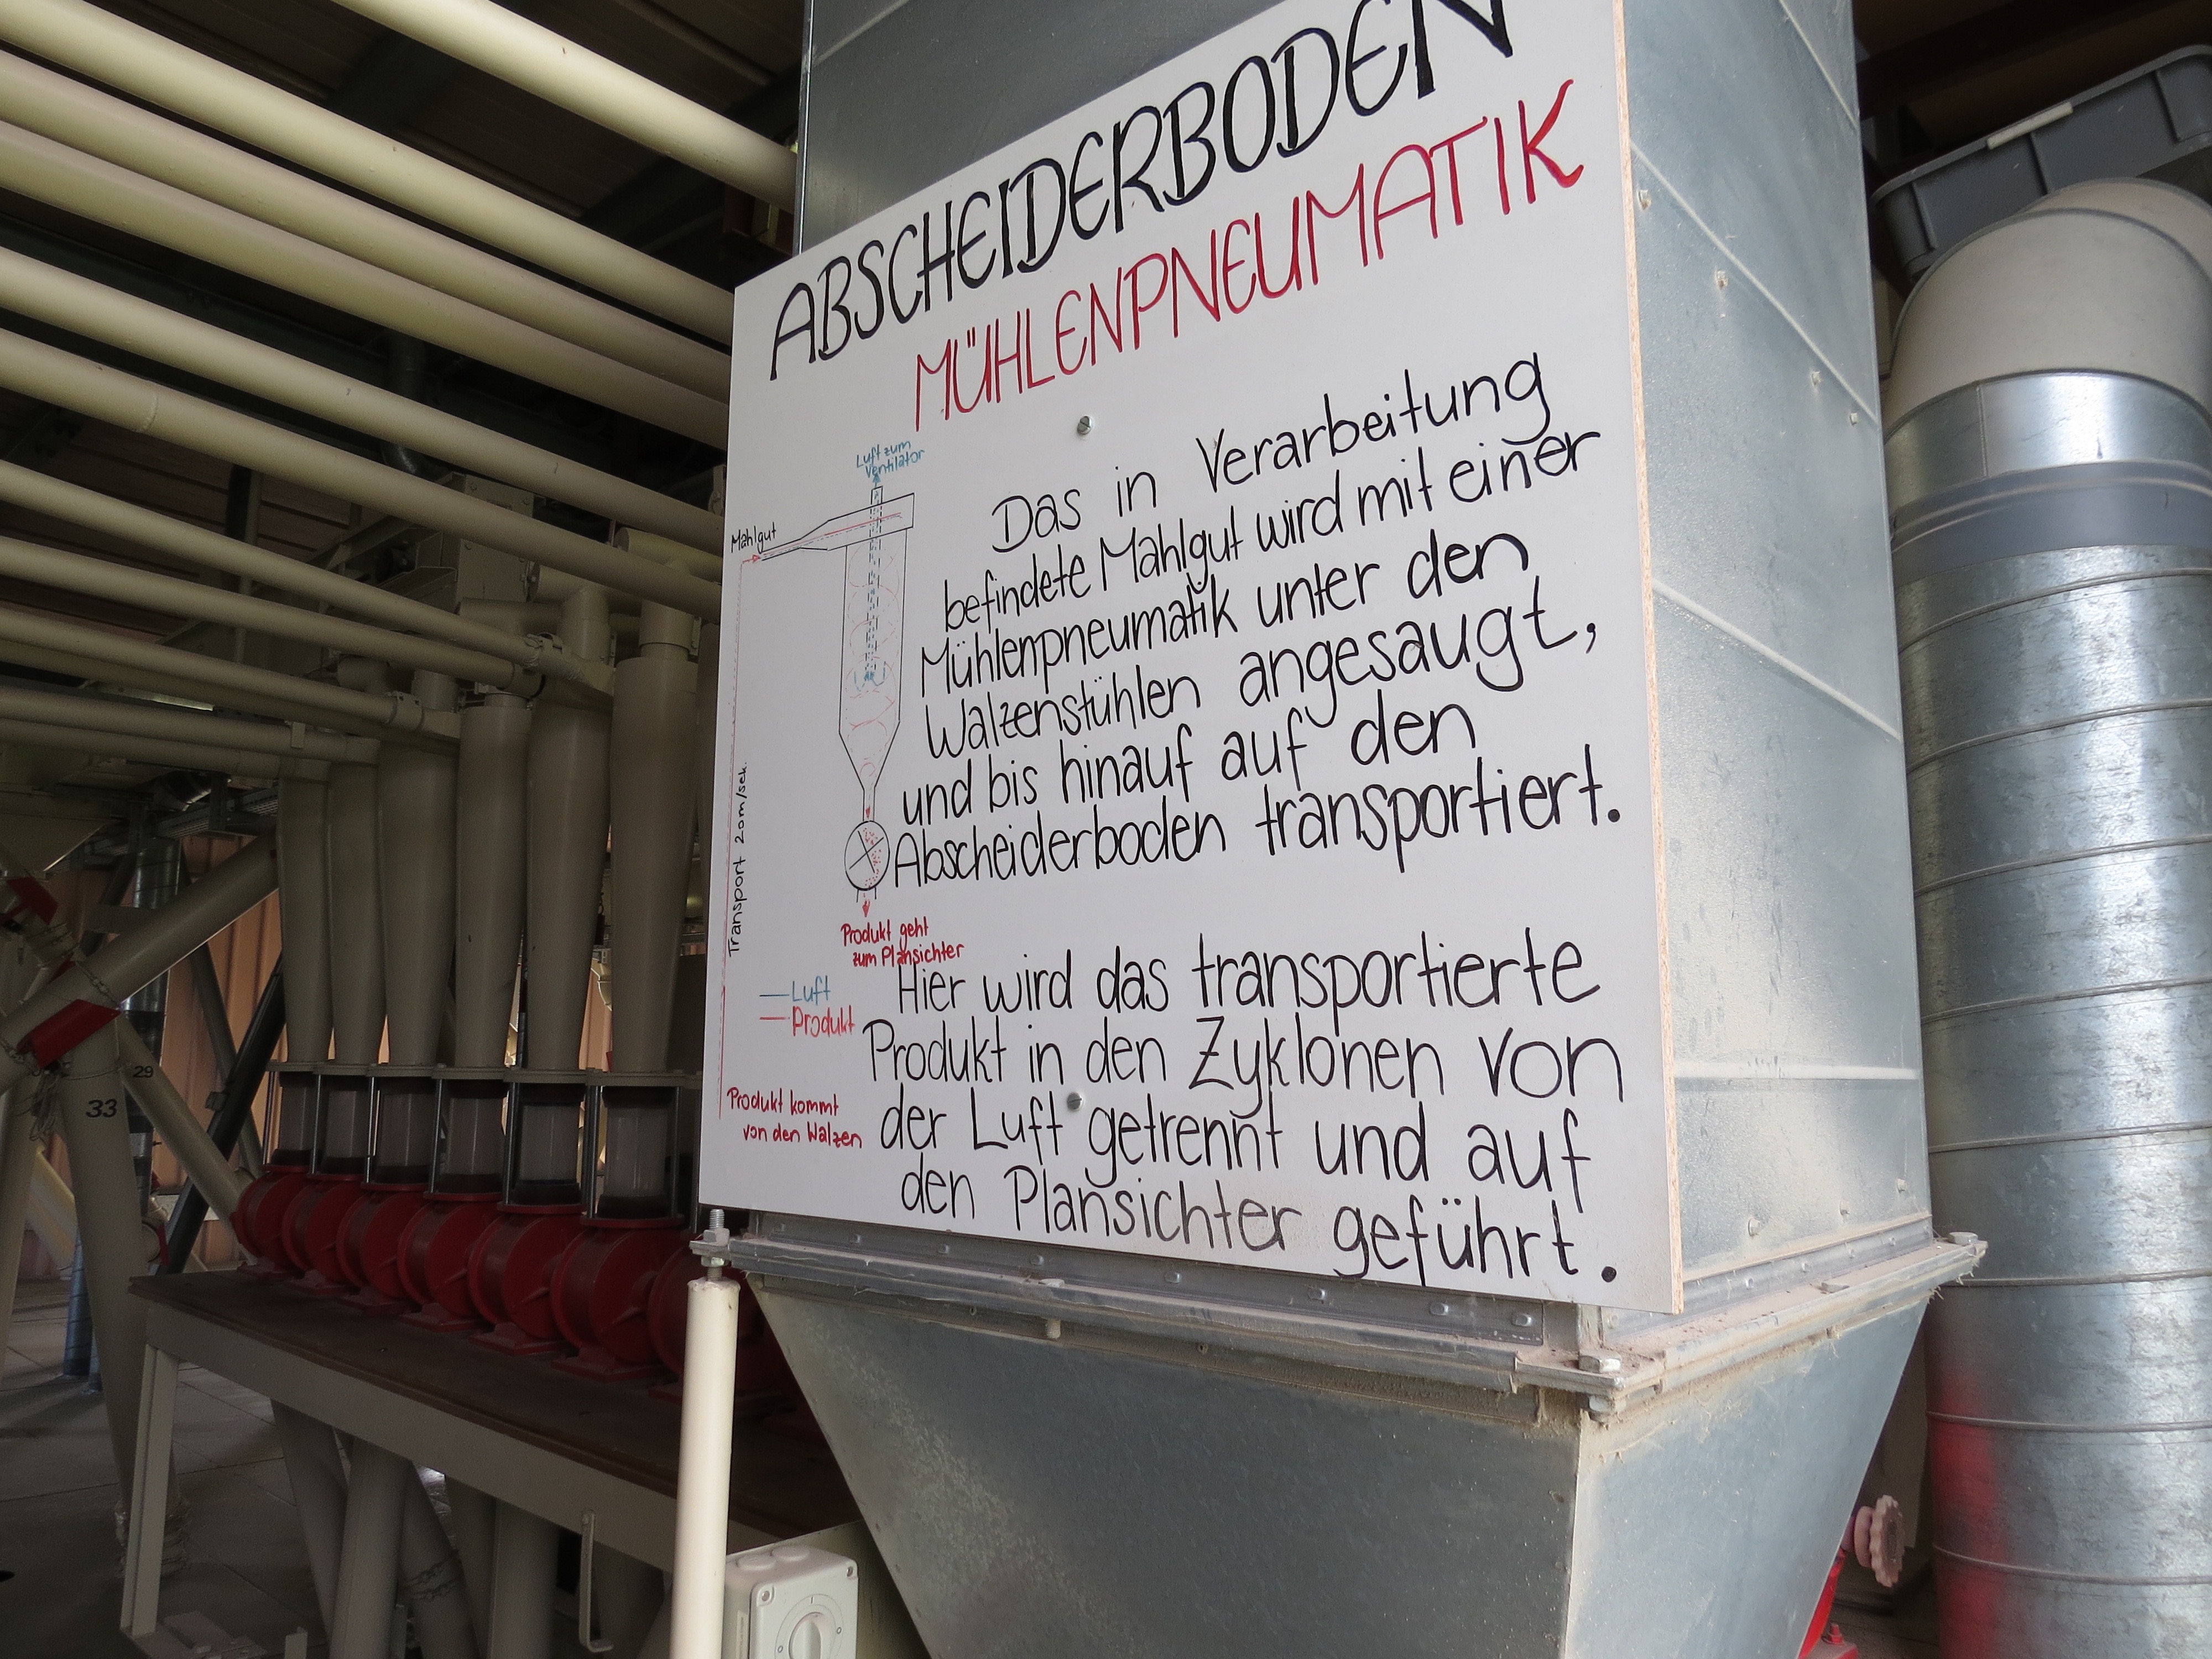 ABSCHEIDERBODEN
MÜHLENPNEUMATIK
Luft zum
Ventilator
Mahlgut
Transport 20m/sek.
Produkt geht
zum Plansichter
Luft
Produkt
Produkt kommt
von den Walzen
Das in Verarbeitung
befindete Mahlgut wird mit einer
Mühlenpneumatik unter den
Walzenstühlen angesaugt,
und bis hinauf auf den
Abscheiderboden transportiert.
Hier wird das transportierte
Produkt in den Zyklonen von
der Luft getrennt und auf
den Plansichter geführt.
33
29